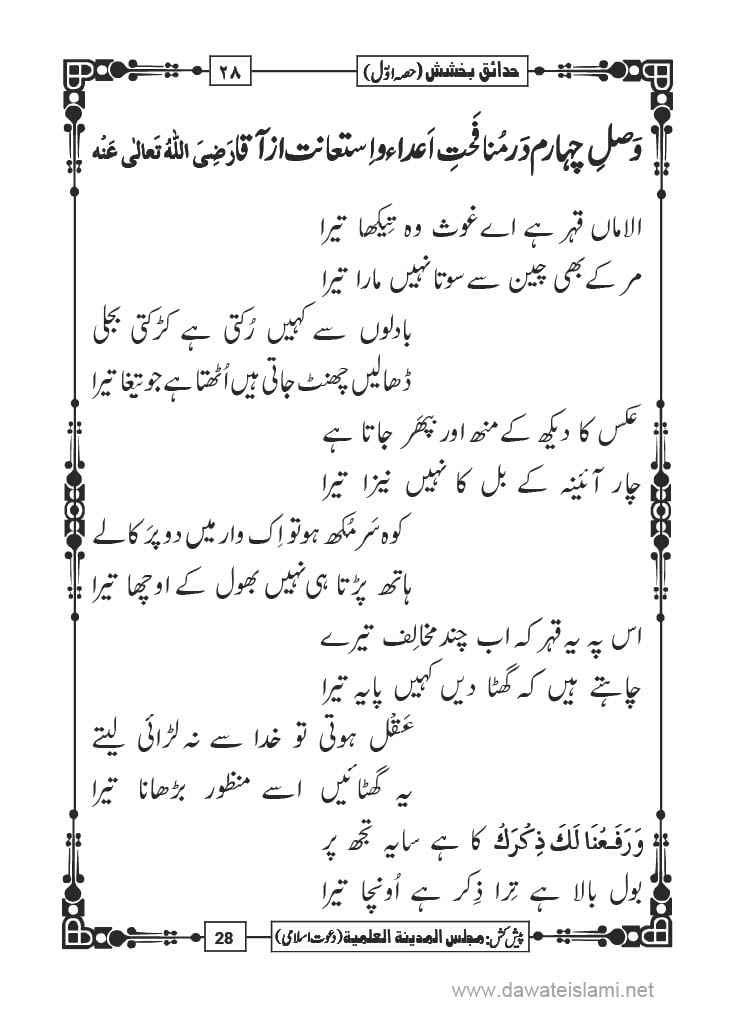 حدائق بخشش (حصہ اوّل)
۲۸
وَصلِ چہارم دَر مُنافَحَتِ اَعداء و اِستعانت از آقا رَضِیَ اللہُ تَعالٰی عَنْہ
الاماں قہر ہے اے غوث وہ تِیکھا تیرا
مر کے بھی چین سے سوتا نہیں مارا تیرا
بادلوں سے کہیں رُکتی ہے کڑکتی بجلی
ڈھالیں چھنٹ جاتی ہیں اُٹھتا ہے جو تیغا تیرا
عکس کا دیکھ کے منھ اور بپھَر جاتا ہے
چار آئینہ کے بل کا نہیں نیزا تیرا
کوہ سَر مُکھ ہو تو اِک وار میں دو پَر کالے
ہاتھ پڑتا ہی نہیں بھول کے اوچھا تیرا
اس پہ یہ قہر کہ اب چند مخالِف تیرے
چاہتے ہیں کہ گھٹا دیں کہیں پایہ تیرا
عَقْل ہوتی تو خدا سے نہ لڑائی لیتے
یہ گھٹائیں اسے منظور بڑھانا تیرا
وَرَفَعْنَا لَكَ ذِكْرَكْ کا ہے سایہ تجھ پر
بول بالا ہے تِرا ذِکر ہے اُونچا تیرا
پیش کش: مجلس المدینة العلمیة (دعوتِ اسلامی)
28
www.dawateislami.net